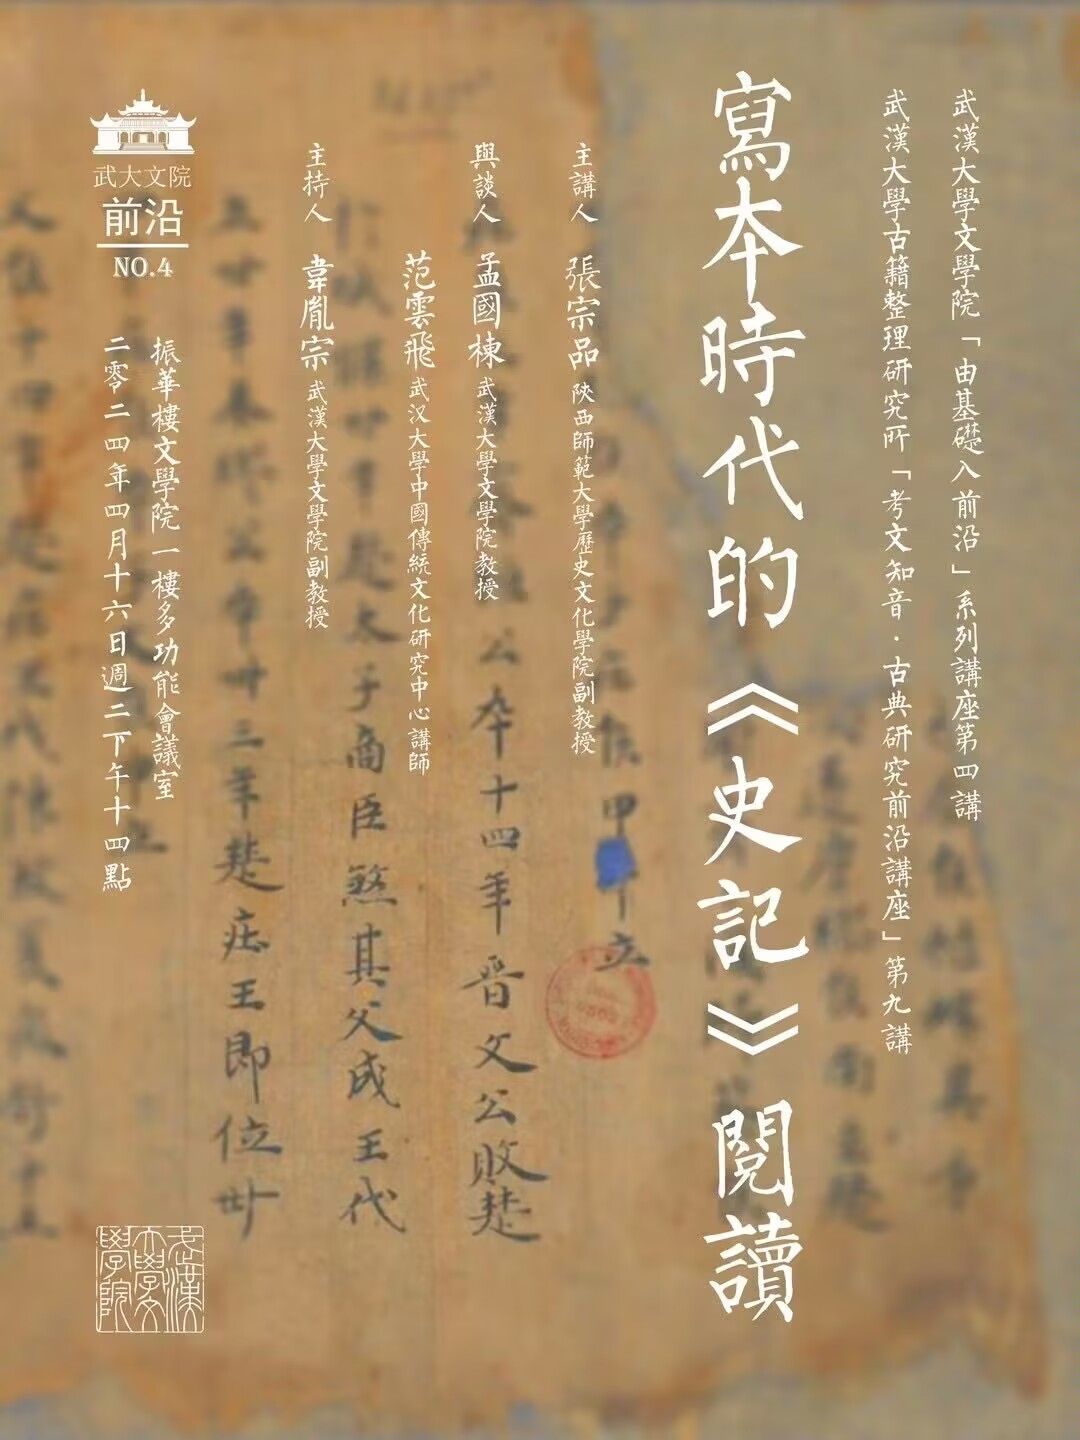 武漢大學文學院「由基礎入前沿」系列講座第四講
武漢大學古籍整理研究所「考文知音·古典研究前沿講座」第九講
寫本時代的《史記》閱讀
主講人 張宗品 陝西師範大學歷史文化學院副教授
與談人 孟國棟 武漢大學文學院教授
范雲飛 武汉大學中國傳統文化研究中心講師
主持人 韋胤宗 武漢大學文學院副教授
振華樓文學院一樓多功能會議室
二零二四年四月十六日週二下午十四點
武大文院
前沿
NO.4
武漢
大學文
學院
公卒十四年晉文公敗楚
太子商臣煞其父成王代
卅三年楚庄王即位卌